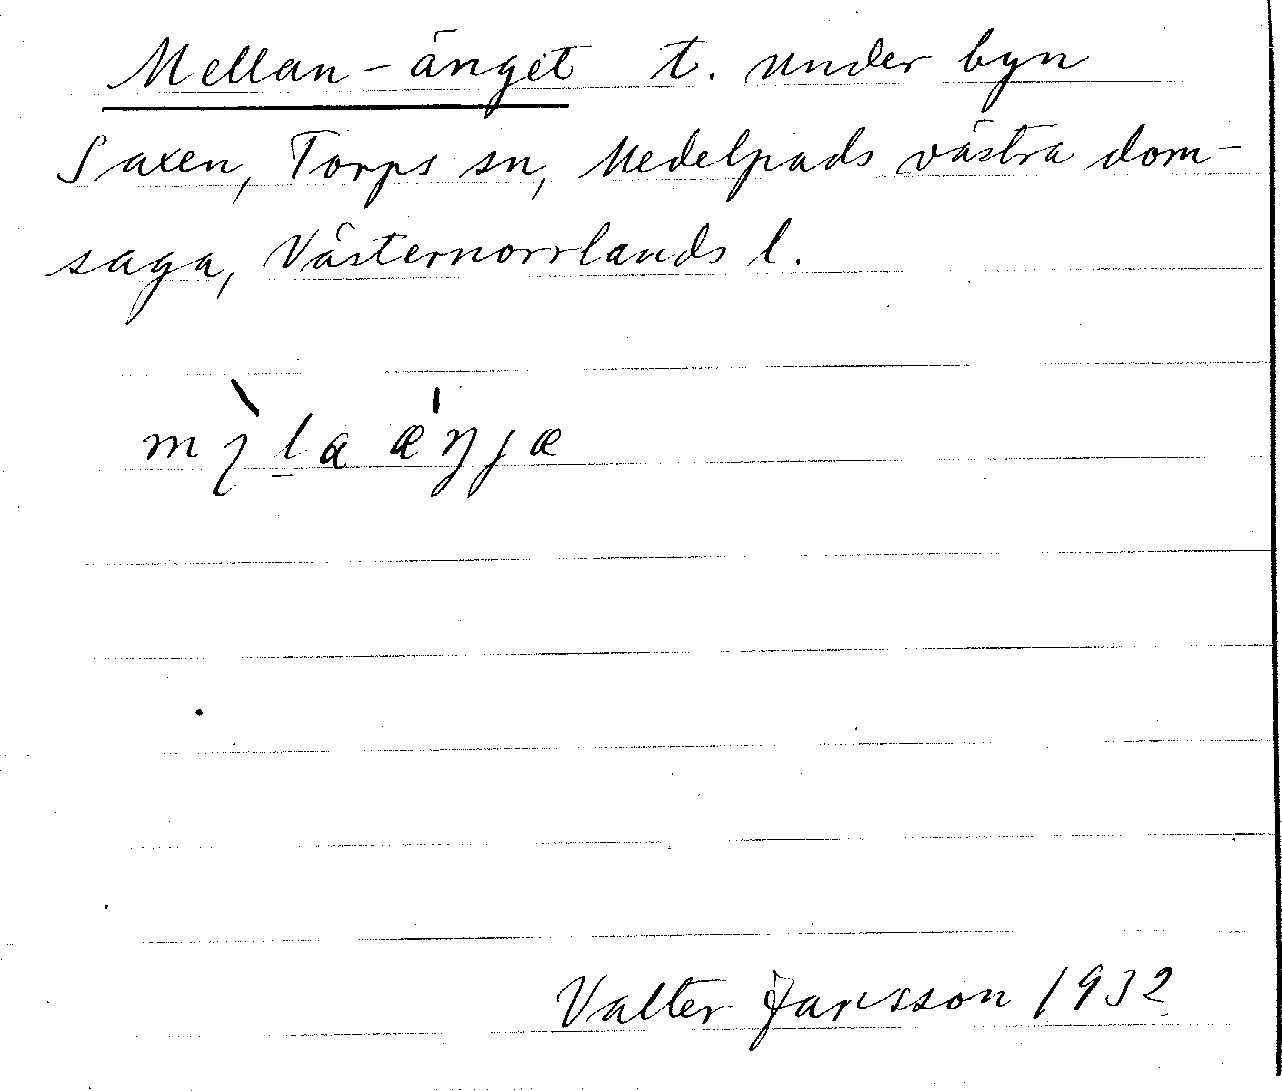 Mellan-änget t. under byn
Saxen, Torps sn, Medelpads västra dom-
saga, Västernorrlands l.
Valter Jansson 1932